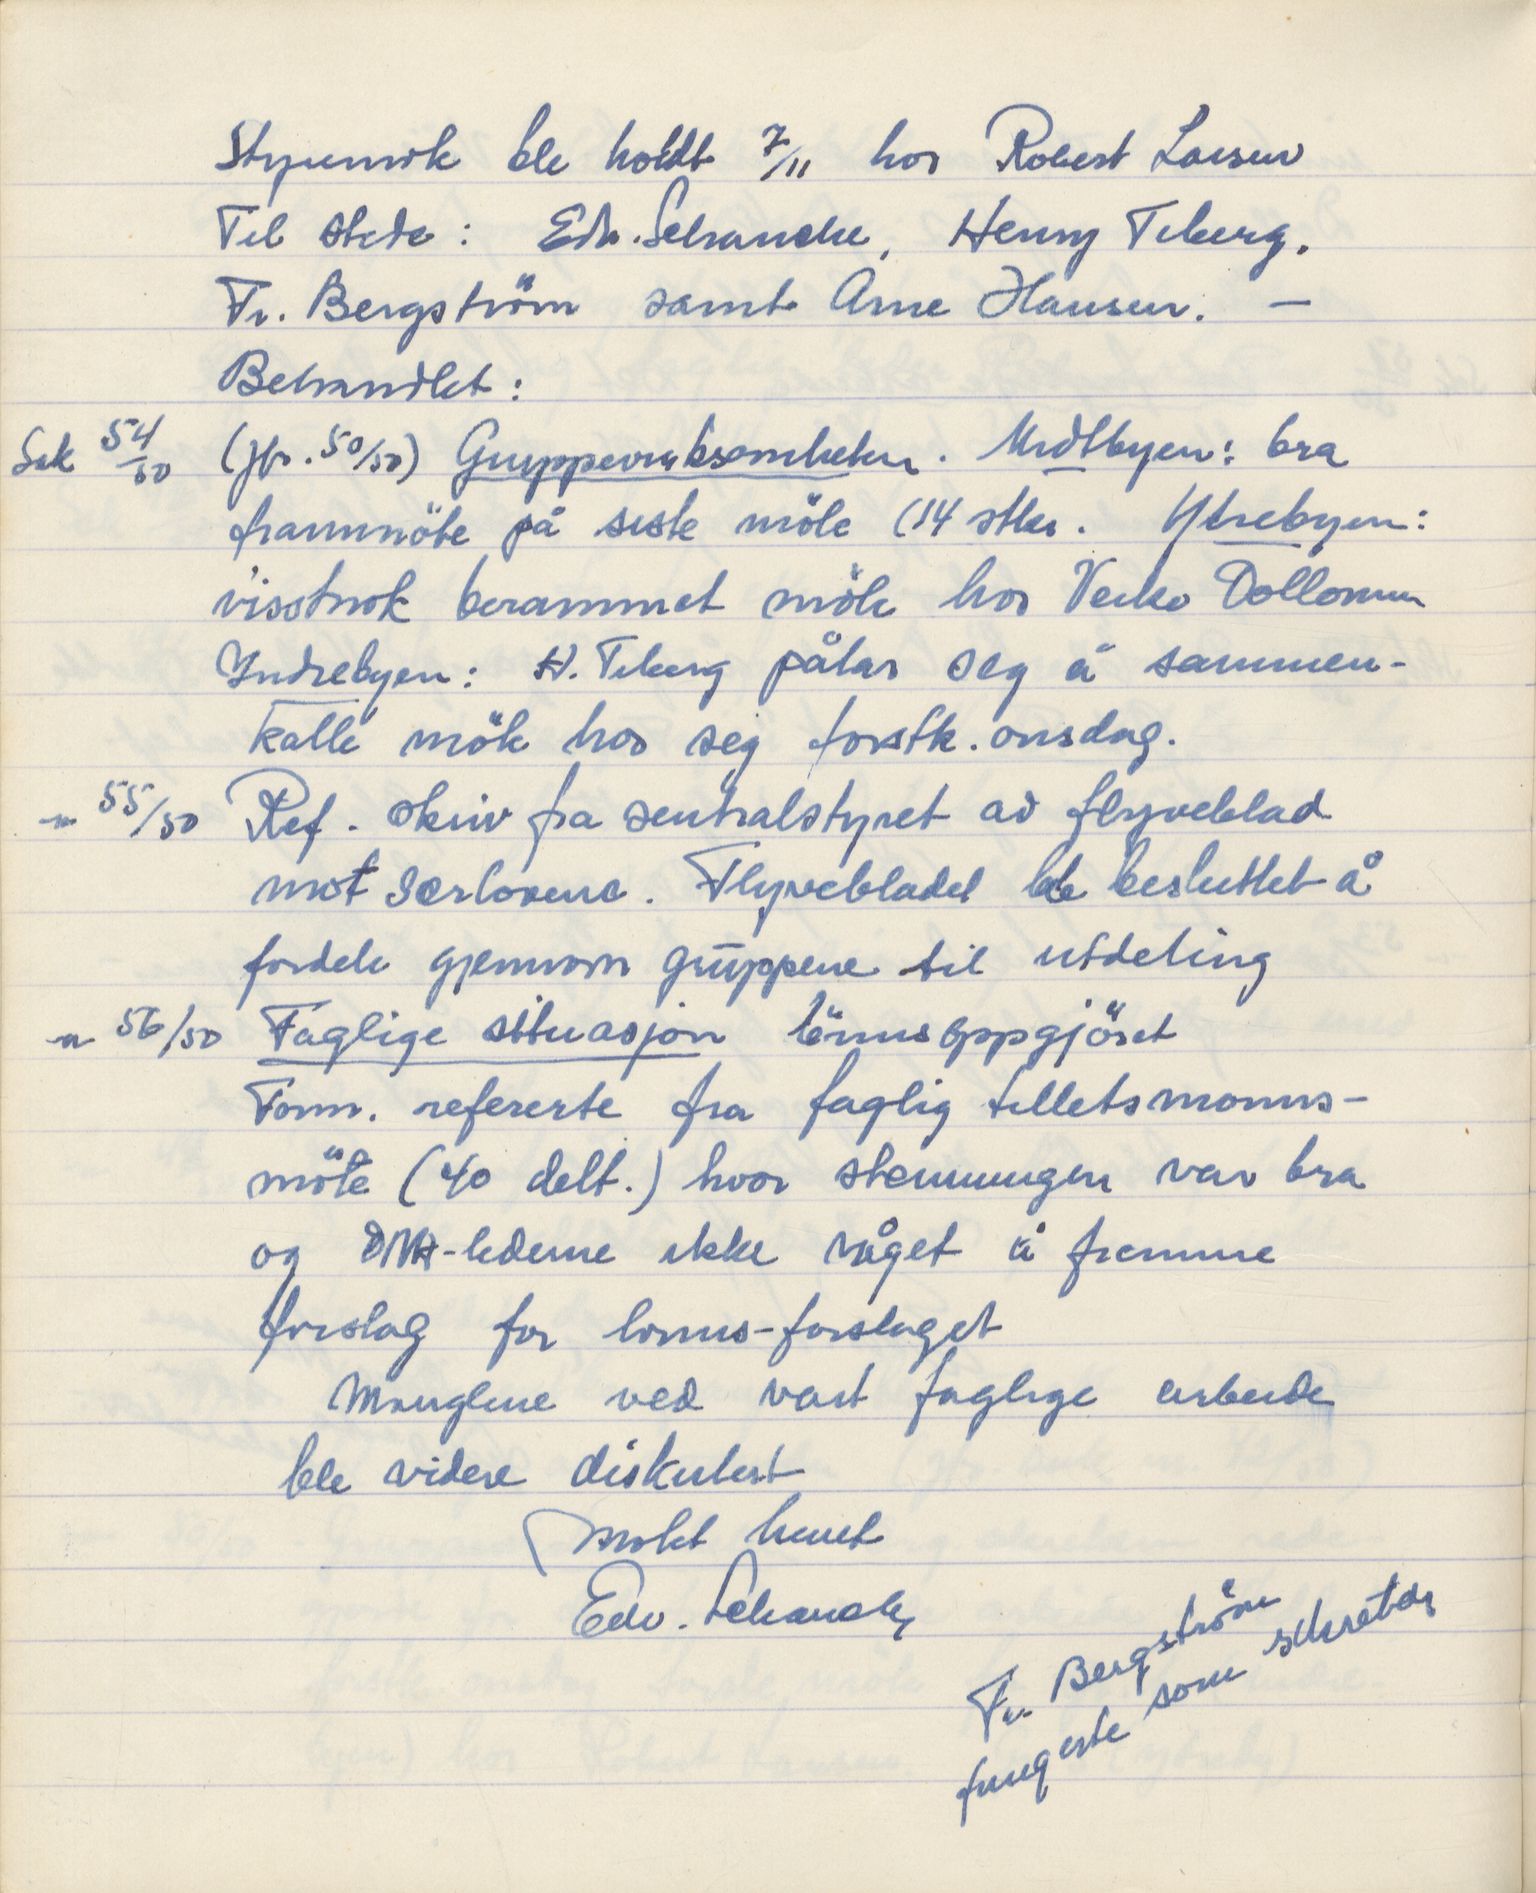 Styremøte ble holdt 7/11 hos Robert Larsen
Til stede: Edv. Schancke, Henry Tiberg.
Fr. Bergström samt Arne Hansen. —
Behandlet:
Sak 54/50 (jfr. 50/50) Gruppevirksomheten. Midtbyen: bra
frammöte på siste möte (14 stkr. Ytrebyen:
visstnok berammet möte hos
Indrebyen: H. Tiberg påtar seg å sammen-
kalle möte hos seg førstk. onsdag.
" 55/50 Ref. skriv fra sentralstyret ad flyveblad
mot særlovene. Flyvebladet ble besluttet å
fordele gjennom gruppene til utdeling
" 56/50 Faglige situasjon lönnsoppgjöret
Form. refererte fra faglig tillitsmanns-
möte (40 delt.) hvor stemningen var bra
og DNA-lederne ikke våget å fremme
forslag for lønns-forslaget
Manglene ved vårt faglige arbeide
ble videre diskutert
Møtet hevet
Edv. Schancke
Fr. Bergström
fungerte som sekretær